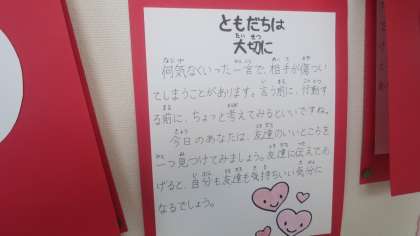 ともだちは
大切に
何気なくいった一言で、相手が傷つい
てしまうことがあります。言う前に、行動す
る前に、ちょっと考えてみるといいですね。
今日のあなたは、友達のいいところを
一つ見つけてみましょう。友達に伝えてあ
げると、自分も友達も気持ちいい気分に
なるでしょう。